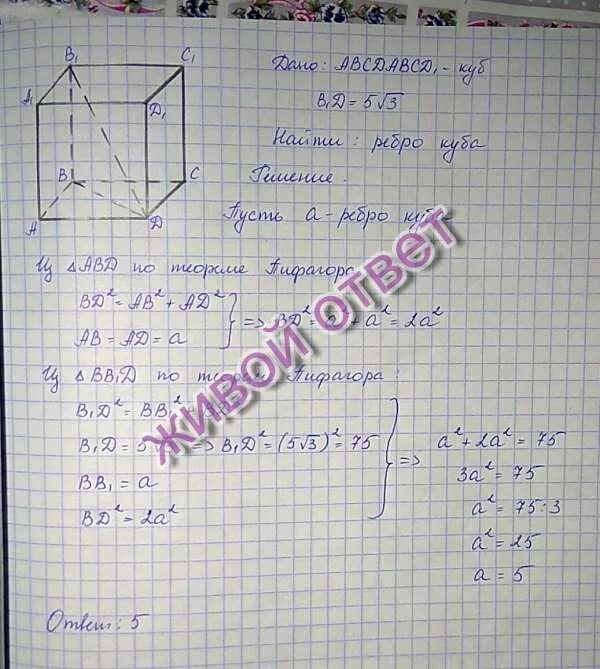 B₁ C₁
A₁ D₁
B C
A D
Дано: ABCDABCD₁ - куб
B₁D = 5√3
Найти: ребро куба
Решение.
Пусть a - ребро куба
Из △ABD по теореме Пифагора
BD² = AB² + AD²
AB = AD = a
=> BD² = a² + a² = 2a²
Из △BB₁D по теореме Пифагора:
B₁D² = BB₁²
B₁D = 5 => B₁D² = (5√3)² = 75
BB₁ = a
BD² = 2a²
=> a² + 2a² = 75
3a² = 75
a² = 75:3
a² = 25
a = 5
Ответ: 5
ЖИВОЙ ОТВЕТ